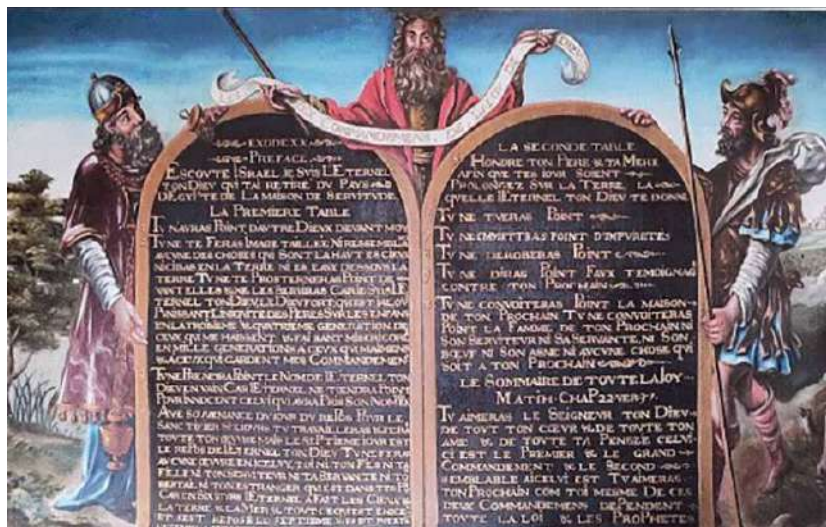 COMMANDEMENS DE
EXODE XX
PREFACE
ESCOVTE ISRAEL JE SVIS L'ETERNEL
TON DIEV QVI T'AI RETIRE DV PAYS
DEGYPTE DE LA MAISON DE SERVITVDE
LA PREMIERE TABLE
TV N'AVRAS POINT DAVTRE DIEVX DEVANT MOY
TV NE TE FERAS IMAGE TAILLEE NI RESSEMBLA
AVCVNE DES CHOSES QVI SONT LA HAVT ES CIEVX
NI CI BAS EN LA TERRE NI ES EAVX DESSOVS LA
TERRE TV NE TE PROSTERNERAS POINT DE
VANT ELLES & NE LES SERVIRAS CAR JE SVIS L'E
TERNEL TON DIEV LE DIEV FORT QVI EST JALOV
PVNISSANT L'INIQVITE DES PERES SVR LES ENFANS
EN LA TROISIEME & QVATRIEME GENERATION DE
CEVX QVI ME HAISSENT & FAISANT MISERICORDE
EN MILLE GENERATIONS A CEVX QVI M'AIMENT
& A CEVX QVI GARDENT MES COMMANDEMENT
TV NE PRENDRA POINT LE NOM DE L'ETERNEL TON
DIEV EN VAIN CAR L'ETERNEL NE TIENDRA POINT
POVR INNOCENT CELVI QVI AVRA PRIS SON NOM EN
AYE SOVVENANCE DV JOVR DV REPOS POVR LE
SANCTIFIER SIX JOVRS TV TRAVAILLERAS & FERAS
TOVTE TON ŒVVRE MAIS LE SEPTIEME JOVR EST
LE REPOS DE L'ETERNEL TON DIEV TV NE FERAS
AVCVNE ŒVVRE EN ICELVY, TOI NI TON FILS NI TA
FILLE NI TON SERVITEVR NI TA SERVANTE NI TON
BETAIL NI TON ETRANGER QVI EST DANS TES PO
CAR EN SIX JOVRS L'ETERNEL A FAIT LES CIEVX &
LA TERRE & LA MER & TOVT CE QVI EST EN ICE
ET S'EST REPOSE LE SEPTIEME
LA SECONDE TABLE
HONORE TON PERE & TA MERE
AFIN QVE TES IOVR SOIENT
PROLONGEZ SVR LA TERRE LA
QVELLE L'ETERNEL TON DIEV TE DONNE
TV NE TVERAS POINT
TV NE COMMETTRAS POINT D'IMPVRETES
TV NE DEROBERAS POINT
TV NE DIRAS POINT FAVX TEMOIGNAG
CONTRE TON PROCHAIN
TV NE CONVOITERAS POINT LA MAISON
DE TON PROCHAIN TV NE CONVOITERAS
POINT LA FAMME DE TON PROCHAIN NI
SON SERVITEVR NI SA SERVANTE, NI SON
BŒVF NI SON ASNE NI AVCVNE CHOSE QVI
SOIT A TON PROCHAIN
LE SOMMAIRE DE TOVTE LA LOY
MATTH CHAP 22 VER 37
TV AIMERAS LE SEIGNEVR TON DIEV
DE TOVT TON CŒVR & DE TOVTE TON
AME & DE TOVTE TA PENSEE CELVI
CI EST LE PREMIER & LE GRAND
COMMANDEMENT & LE SECOND
SEMBLABLE A ICELVI EST TV AIMERAS
TON PROCHAIN COM TOI MESME DE CES
DEVX COMMANDEMENS DEPENDENT
TOVTE LA LOI & LES PROPHETES